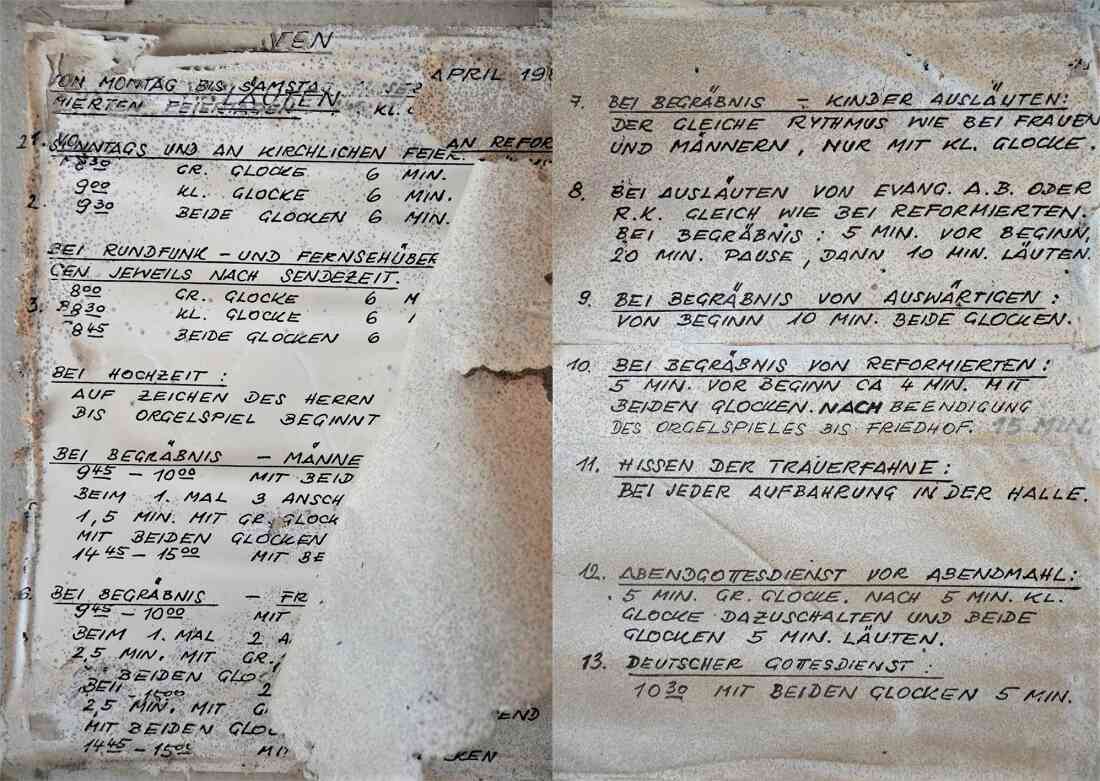 VON MONTAG BIS SAMSTA
APRIL 19
LÄUTEN
MIERTEN FEIERTAGEN KL.
SONNTAGS UND AN KIRCHLICHEN FEIER.
AN REFOR
8 30 GR. GLOCKE 6 MIN.
9 00 KL. GLOCKE 6 MIN.
2. 9 30 BEIDE GLOCKEN 6 MIN.
BEI RUNDFUNK - UND FERNSEHÜBER
GEN JEWEILS NACH SENDEZEIT.
8 00 GR. GLOCKE 6 M
3. 8 30 KL. GLOCKE 6
8 45 BEIDE GLOCKEN 6
BEI HOCHZEIT :
AUF ZEICHEN DES HERRN
BIS ORGELSPIEL BEGINNT
BEI BEGRÄBNIS - MÄNNE
9 45 - 10 00 MIT BEID
BEIM 1. MAL 3 ANSCH
1,5 MIN. MIT GR. GLOCK
MIT BEIDEN GLOCKEN
14 45 - 15 00 MIT BE
BEI BEGRÄBNIS - FR
9 45 - 10 00 MIT
BEIM 1. MAL 2 A
2,5 MIN. MIT GR.
BEIDEN GLO
2
2,5 MIN. MIT G
MIT BEIDEN GLOC
14 45 - 15 00 MI
7. BEI BEGRÄBNIS - KINDER AUSLÄUTEN:
DER GLEICHE RYTHMUS WIE BEI FRAUEN
UND MÄNNERN, NUR MIT KL. GLOCKE.
8. BEI AUSLÄUTEN VON EVANG. A.B. ODER
R.K. GLEICH WIE BEI REFORMIERTEN.
BEI BEGRÄBNIS : 5 MIN. VOR BEGINN,
20 MIN. PAUSE, DANN 10 MIN. LÄUTEN.
9. BEI BEGRÄBNIS VON AUSWÄRTIGEN :
VON BEGINN 10 MIN. BEIDE GLOCKEN.
10. BEI BEGRÄBNIS VON REFORMIERTEN :
5 MIN. VOR BEGINN CA 4 MIN. MIT
BEIDEN GLOCKEN. NACH BEENDIGUNG
DES ORGELSPIELES BIS FRIEDHOF. 15 MIN.
11. HISSEN DER TRAUERFAHNE :
BEI JEDER AUFBAHRUNG IN DER HALLE.
12. ABENDGOTTESDIENST VOR ABENDMAHL:
5 MIN. GR. GLOCKE. NACH 5 MIN. KL.
GLOCKE DAZUSCHALTEN UND BEIDE
GLOCKEN 5 MIN. LÄUTEN.
13. DEUTSCHER GOTTESDIENST :
10 30 MIT BEIDEN GLOCKEN 5 MIN.